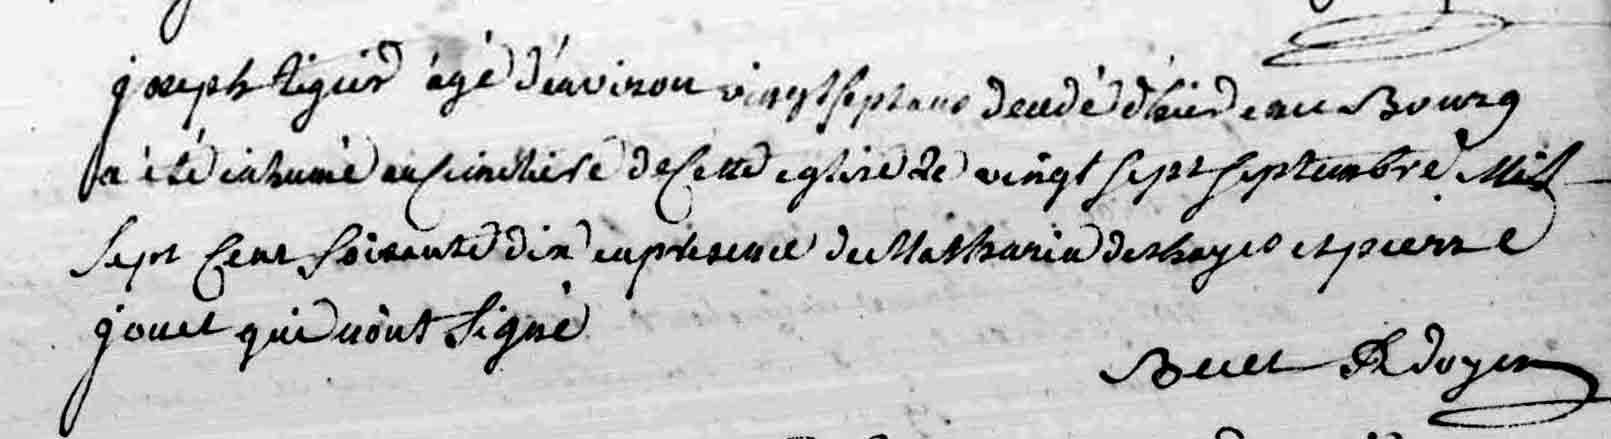 joseph tigier âgé d'environ vingt sept ans decedé d'hier en ce Bourg
a été inhumé au Cimetiere de Cette eglise le vingt sept septembre Mil
sept Cent soixante dix en presence de Mathurin deshayes et pierre
jouet qui n'ont signé
Buet doyen